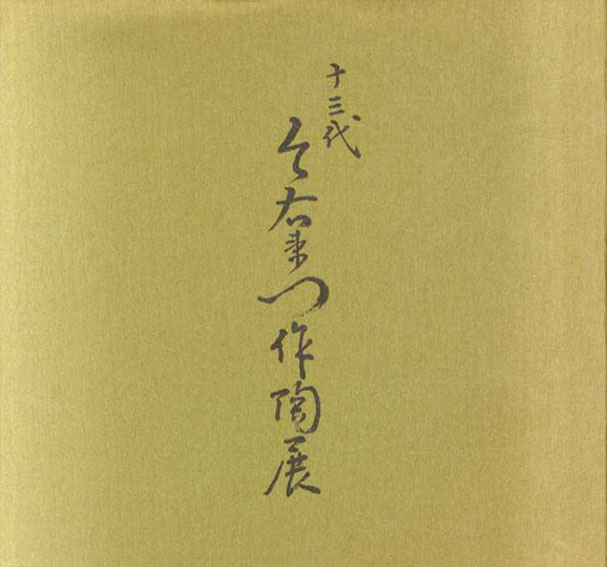 十三代
今右衛門作陶展